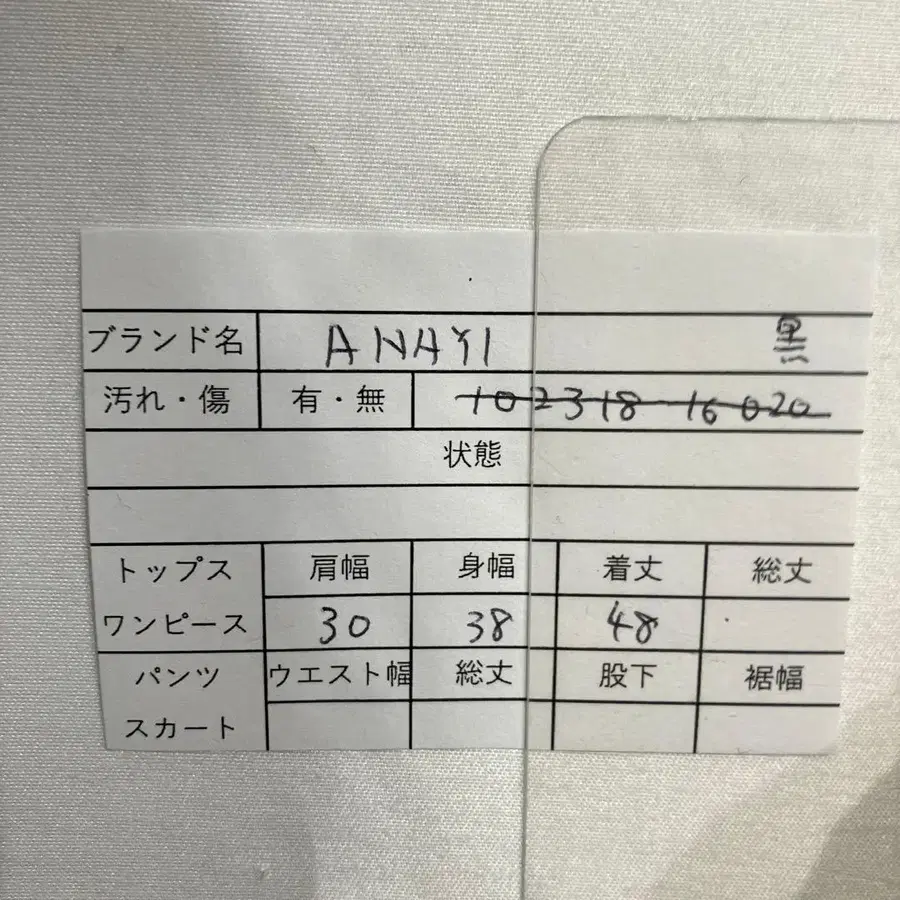 ブランド名 ANAYI 黒
汚れ・傷 有・無 102318-16020
状態
トップス 肩幅 身幅 着丈 総丈
ワンピース 30 38 48
パンツ ウエスト幅 総丈 股下 裾幅
スカート